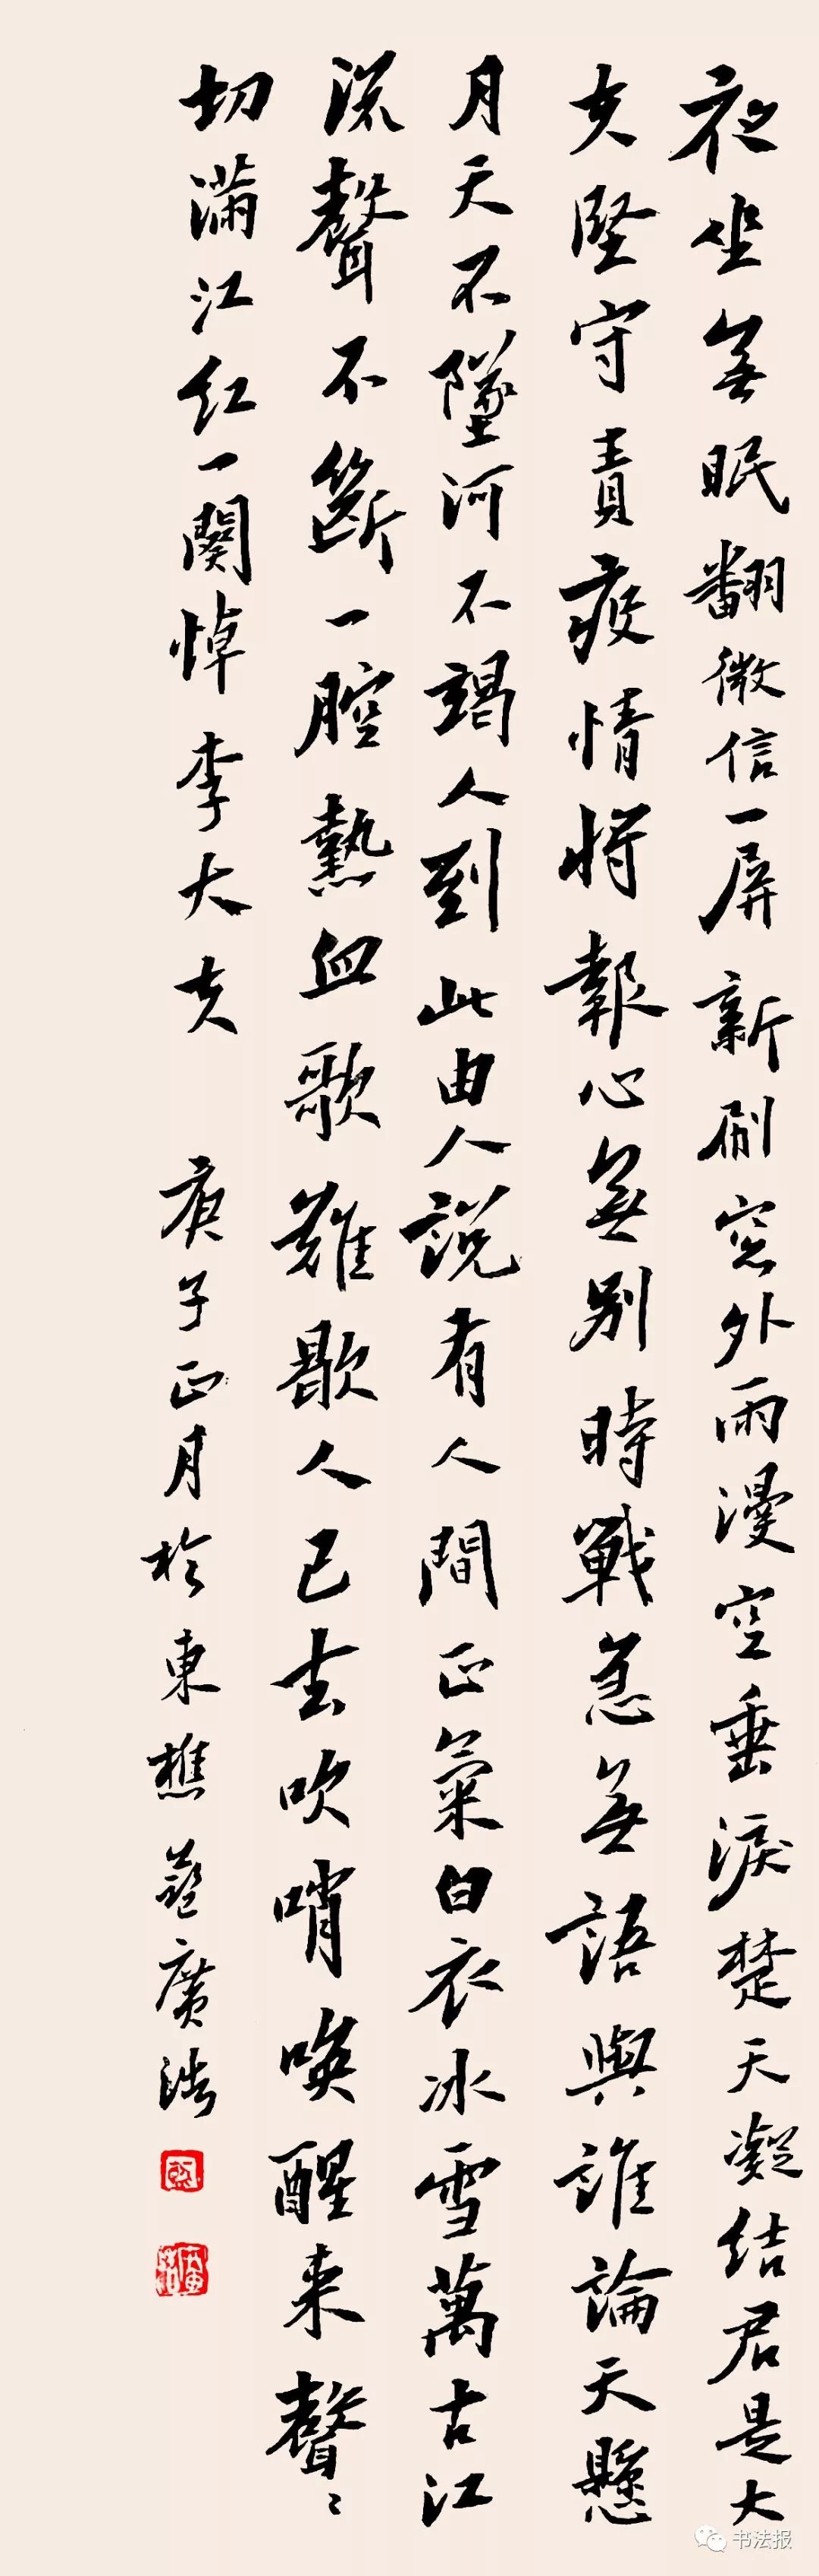 夜坐無眠翻微信一屏新刷窓外雨漫空垂淚楚天凝結君是大
夫堅守責疫情將報心無別時戰急無語與誰論天懸
月天不墜河不竭人到此由人說有人間正氣白衣冰雪萬古江
流聲不斷一腔熱血歌難歇人已去吹哨喚醒來聲〻
切滿江紅一闋悼李大夫
庚子正月於東樵 廣浩
书法报